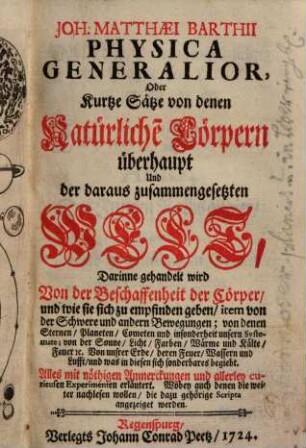 JOH: MATTHÆI BARTHII
PHYSICA
GENERALIOR,
Oder
Kurtze Sätze von denen
Natürlichẽ Cörpern
überhaupt
Und
der daraus zusammengesetzten
WELT,
Darinne gehandelt wird
Von der Beschaffenheit der Cörper/
und wie sie sich zu empfinden geben/ item von
der Schwere und andern Bewegungen; von denen
Sternen/ Planeten/ Cometen und insonderheit unsern Syste-
mate; von der Sonne/ Licht/ Farben/ Wärme und Kälte/
Feuer ꝛc. Von unsrer Erde/ deren Feuer/ Wassern und
Lufft/ und was in diesen sich sonderbares begiebt.
Alles mit nöthigen Anmerckungen und allerley cu-
rieusen Experimenten erläutert. Wobey auch denen die wei-
ter nachlesen wollen/ die dazu gehörige Scripta
angezeiget werden.
Regenspurg/
Verlegts Johann Conrad Peetz/ 1724.